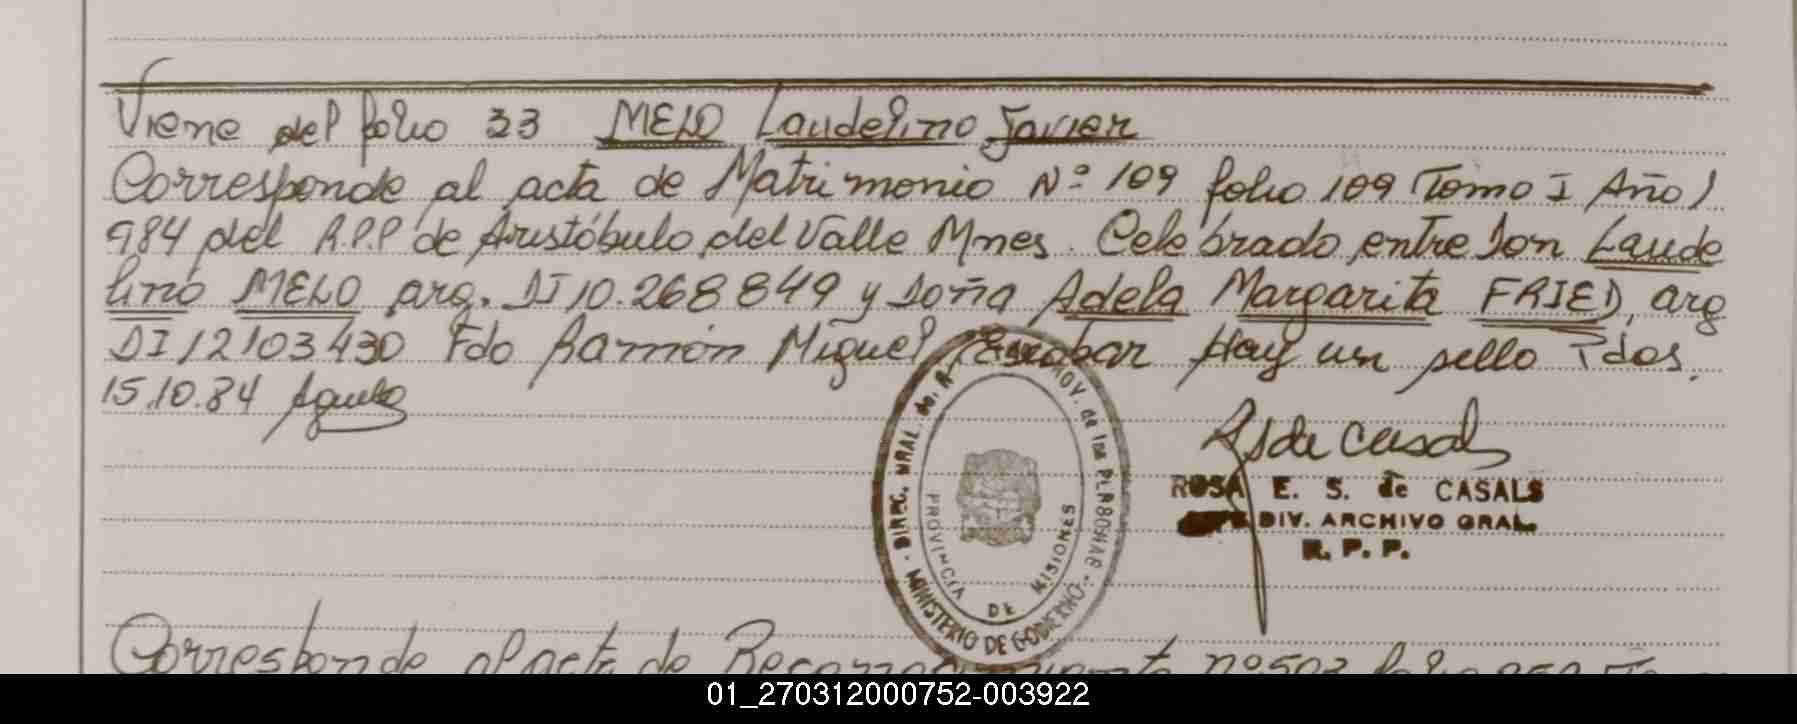 Viene del folio 33 MELO Laudelino Javier
Corresponde al acta de Matrimonio Nº 109 folio 109 Tomo I Año 1
984 del R.P.P de Aristóbulo del Valle Mnes. Celebrado entre Don Laude
lino MELO arg. DI 10.268849 y Doña Adela Margarita FRIED, arg
DI 12103430 Fdo Ramón Miguel Escobar Hay un sello Pdos.
15.10.84
ROSA E. S. de CASALS
DIV. ARCHIVO GRAL.
R. P. P.
DIREC. GRAL. de. R. PROV. de las PERSONAS
MINISTERIO DE GOBIERNO
PROVINCIA DE MISIONES
Corresponde al acta de Reconocimiento nº 503 folio
01_270312000752-003922